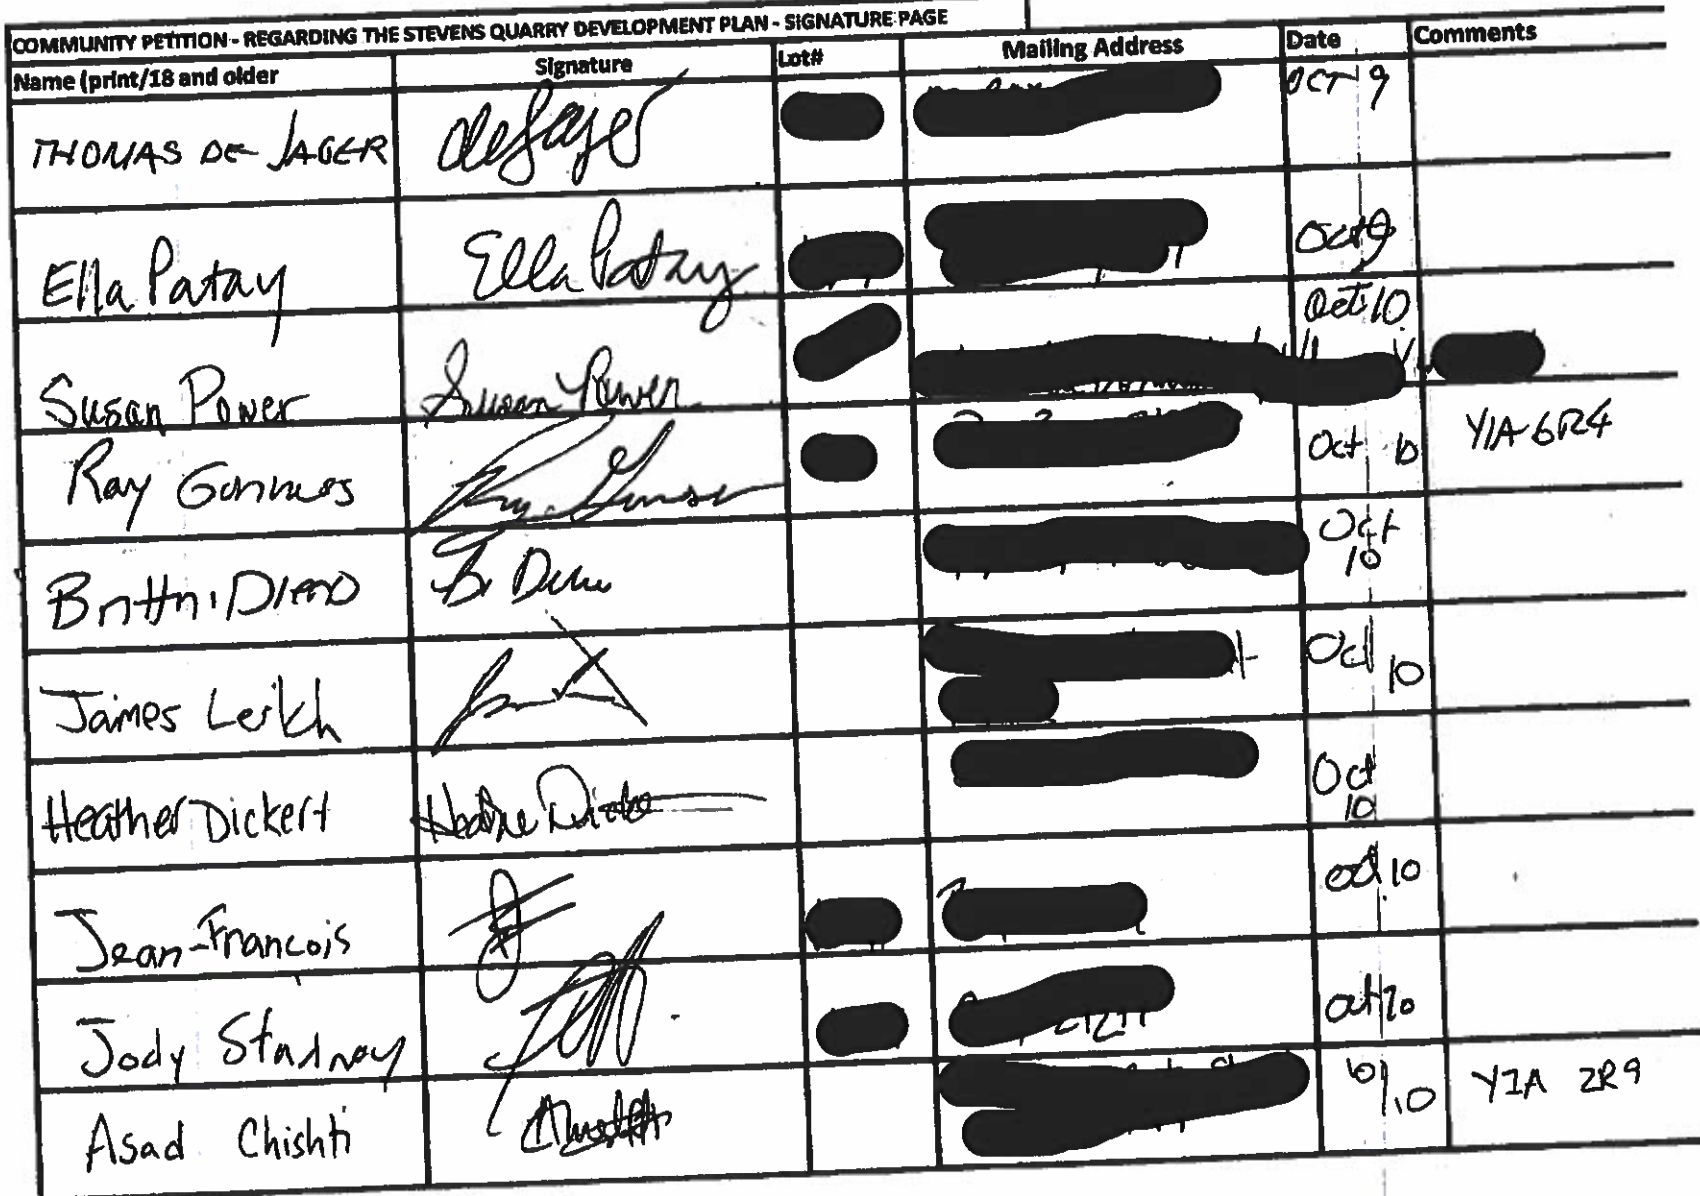 COMMUNITY PETITION - REGARDING THE STEVENS QUARRY DEVELOPMENT PLAN - SIGNATURE PAGE
Name (print/18 and older Signature Lot# Mailing Address Date Comments
THOMAS DE JAGER deJager OCT 9
Ella Patay Ella Patay Oct 9
Susan Power Susan Power Oct 10
Ray Oct 10 Y1A 6R4
B. Oct
10
James Oct 10
Heather Dickert Oct
10
Jean-François oct 10
Jody oct 10
Asad Chishti 10/10 Y1A 2R9